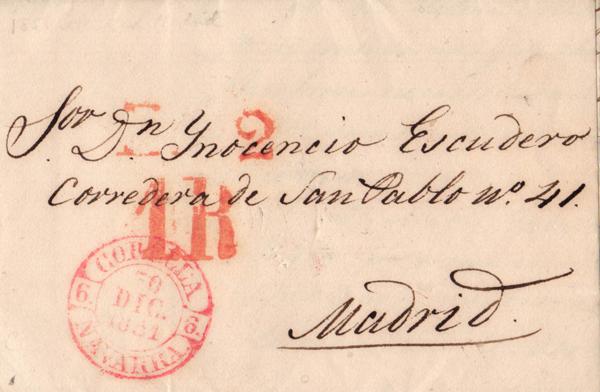 E 2
Sor Dn Ynocencio Escudero
Corredera de San Pablo nº. 41.
1R
Madrid.
CORELLA
6. 6.
30
DIC.
1851
NAVARRA